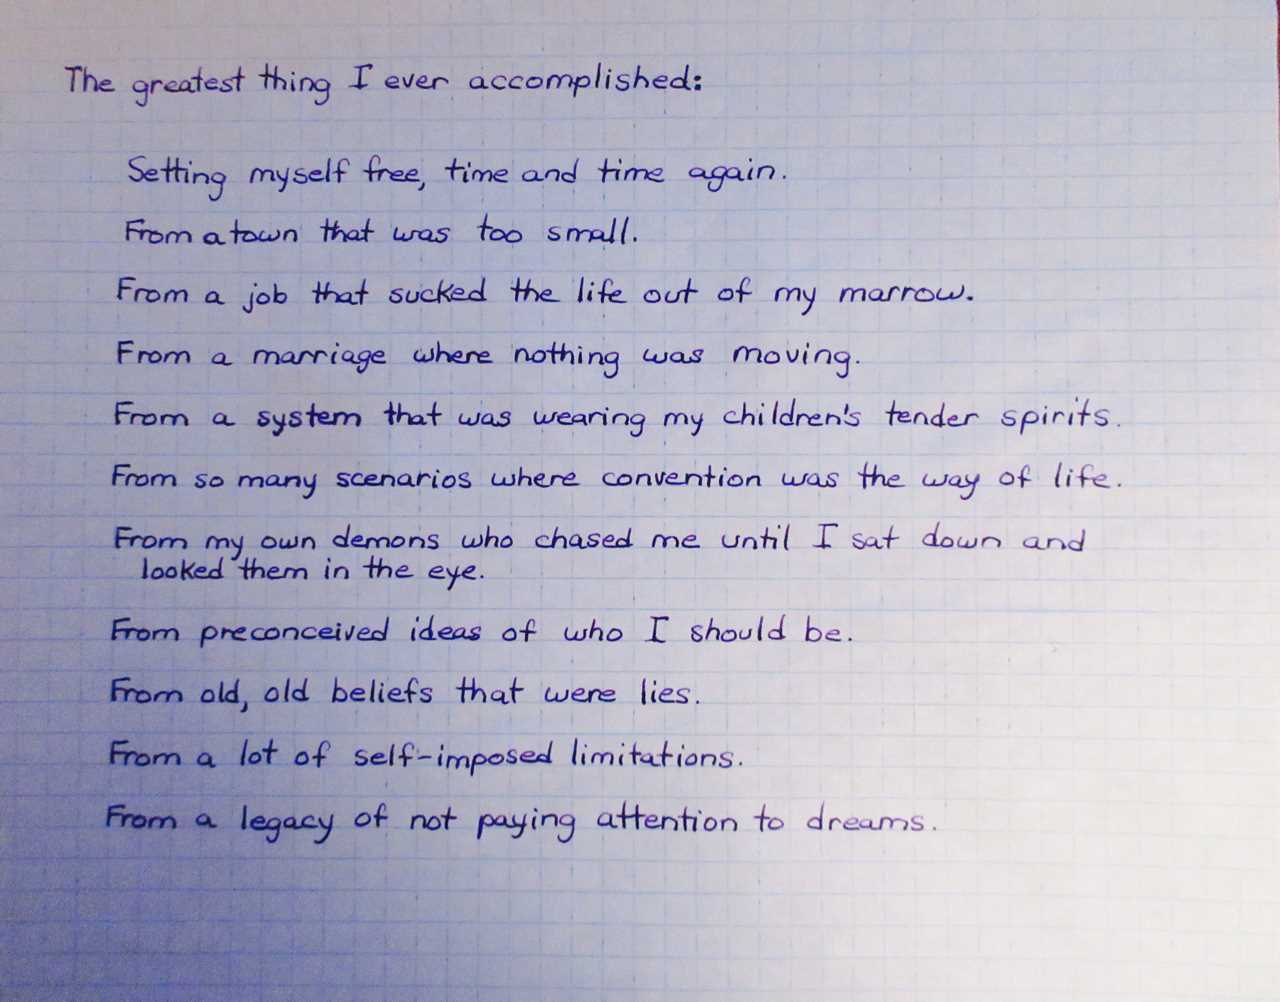 The greatest thing I ever accomplished:
Setting myself free, time and time again.
From a town that was too small.
From a job that sucked the life out of my marrow.
From a marriage where nothing was moving.
From a system that was wearing my children's tender spirits.
From so many scenarios where convention was the way of life.
From my own demons who chased me until I sat down and
looked them in the eye.
From preconceived ideas of who I should be.
From old, old beliefs that were lies.
From a lot of self-imposed limitations.
From a legacy of not paying attention to dreams.